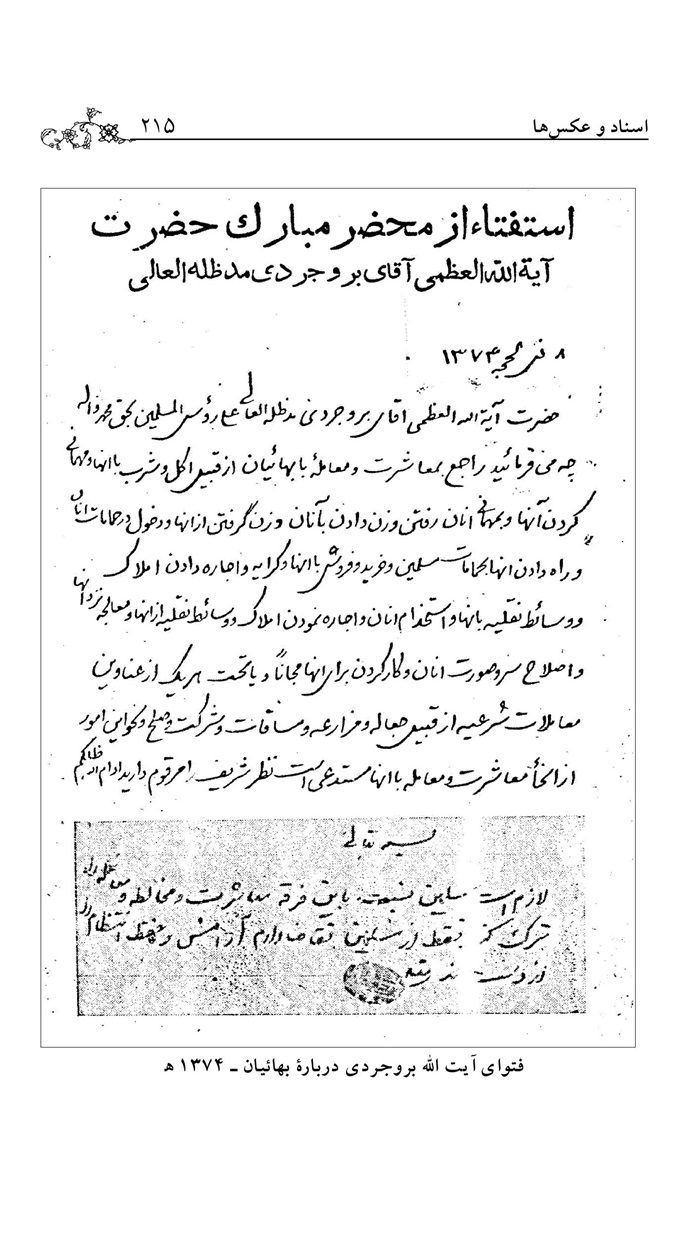 اسناد و عکس‌ها ۲۱۵
استفتاء از محضر مبارك حضرت
آیة الله العظمی آقای بروجردی مدظله العالی
۸ ذی الحجه ۱۳۷۴
حضرت آیة الله العظمی آقای بروجردی مدظله العالی علی رؤس المسلمین بحق محمد واله
چه می فرمائید راجع بمعاشرت و معامله با بهائیان از قبیل اکل و شرب با آنها و مهمانی
کردن آنها و بمهمانی آنان رفتن و زن دادن بآنان و زن گرفتن از آنها و دخول در حمامات آنان
و راه دادن آنها بحمامات مسلمین و خرید و فروش با آنها و کرایه و اجاره دادن املاک
و وسائط نقلیه بآنها و استخدام آنان و اجاره نمودن املاک و وسائط نقلیه از آنها و معالجه نزد آنها
و اصلاح سر و صورت آنان و کار کردن برای آنها مجاناً و یا تحت هر یک از عناوین
معاملات شرعیه از قبیل جعاله و مزارعه و مساقات و شرکت و صلح و نحو این امور
از انحاء معاشرت و معامله با آنها مستدعی است نظر شریف را مرقوم دارید ادام الله ظلکم
بسمه تعالی
لازم است مسلمین نسبت باین فرقه معاشرت و مخالطه و معامله را
ترک کنند فقط از مسلمین تقاضا دارم آرامش و حفظ انتظام را
از دست ندهند
فتوای آیت الله بروجردی دربارهٔ بهائیان ـ ۱۳۷۴ ه‍